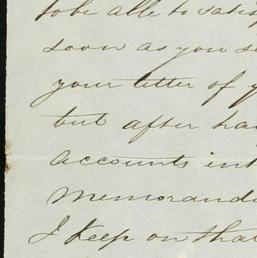 to be able to satis
soon as you s
your letter of y
but after ha
accounts int
memorand
I keep on that